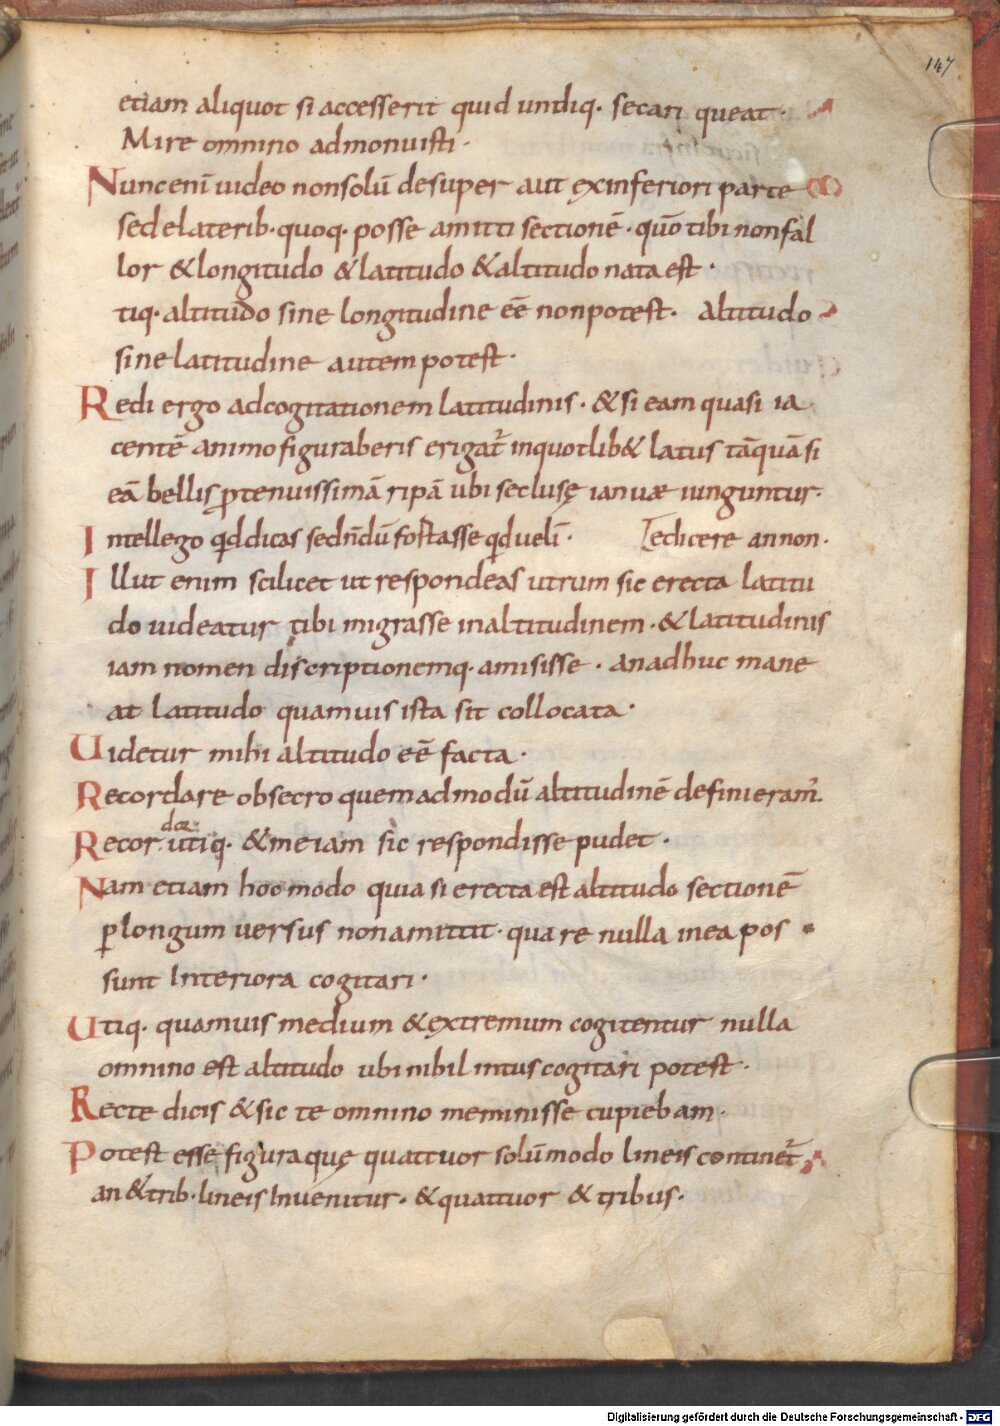 147
etiam aliquot si accesserit quid undiq· secari queat·
Mire omnino admonuisti·
Nunc enī uideo non solū desuper aut ex inferiori parte
sed e laterib· quoq· posse amitti sectionē· quō tibi non fal
lor & longitudo & latitudo & altitudo nata est·
tiq· altitudo sine longitudine eē non potest· Altitudo
sine latitudine autem potest·
Redi ergo ad cogitationem latitudinis· & si eam quasi ia
centē animo figuraberis erigat᷑ in quotlib& latus tāquā si
eā bellis ꝑ tenuissimā ripā ubi seclusę ianuæ iunguntur·
Intellego qd dicas sed ndū fortasse qd uelī· Te dicere annon·
Illut enim scilicet ut respondeas utrum sic erecta latitu
do uideatur tibi migrasse in altitudinem· & latitudinis
iam nomen discriptionemq· amisisse· an adhuc mane
at latitudo quamuis ista sit collocata·
Uidetur mihi altitudo eē facta·
Recordare obsecro quemadmodū altitudinē definieram᷑·
dor
Recor utiq· & me iam sic respondisse pudet·
Nam etiam hoc modo quia si erecta est altitudo sectionē
ꝑ longum uersus non amittit· quare nulla in ea pos
sunt Interiora cogitari·
Utiq· quamuis medium & extremum cogitentur nulla
omnino est altitudo ubi nihil intus cogitari potest·
Recte dicis & sic te omnino meminisse cupiebam·
Potest esse figura quę quattuor solūmodo lineis continet᷑
an & trib· lineis Inuenitur· & quattuor & tribus·
Digitalisierung gefördert durch die Deutsche Forschungsgemeinschaft - DFG